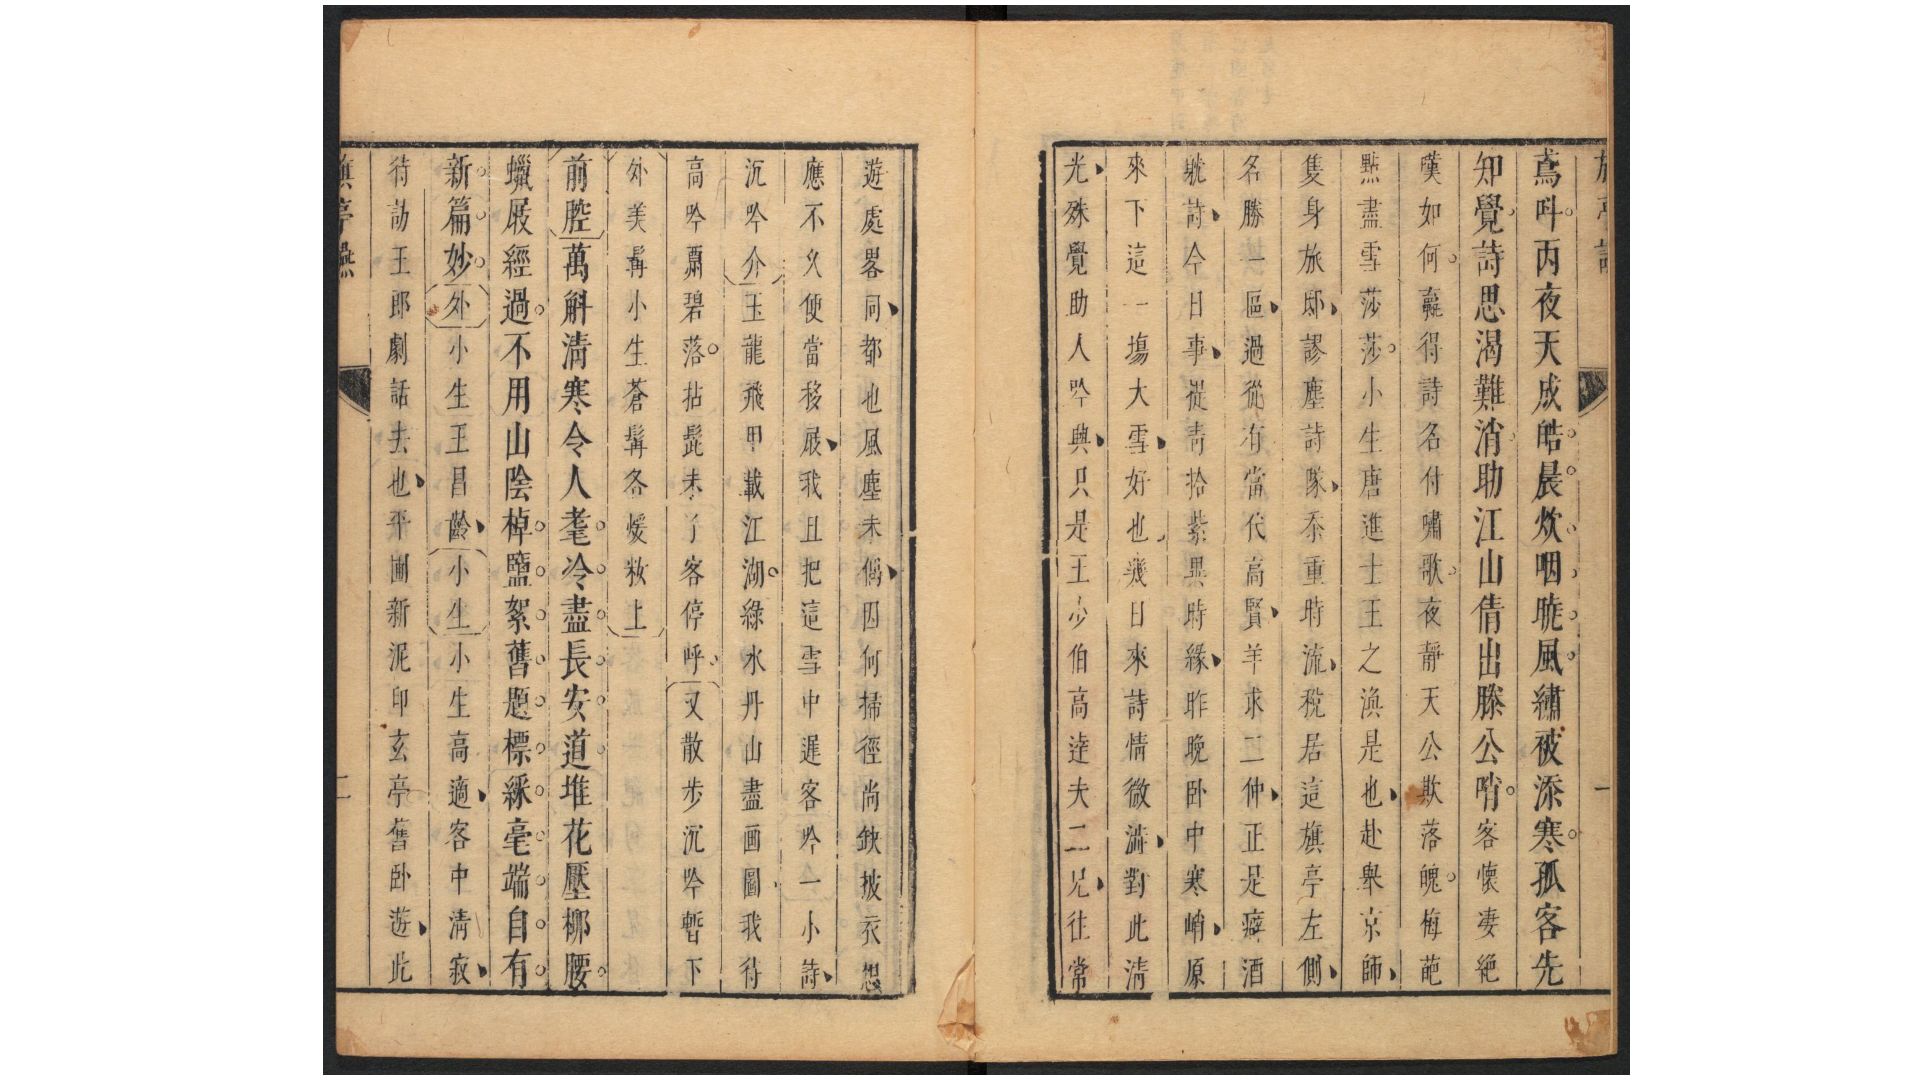 鳶呌丙夜天成皓晨炊咽曉風繡被添寒孤客先
知覺詩思渴難消助江山倩出滕公哨客懷凄絶
嘆如何羸得詩名付嘯歌夜靜天公欺落魄梅葩
點盡雪莎莎小生唐進士王之渙是也赴舉京師
隻身旅邸謬塵詩隊忝重時流稅居這旗亭左側
名勝一區過從有當代高賢羊求二仲正是癖酒
躭詩今日事從靑拾紫異時緣昨晚卧中寒峭原
來下這一塲大雪好也幾日來詩情微滿對此淸
光殊覺助人吟興只是王少伯高逹夫二兄往常
遊處畧同都也風塵未偶囚何掃徑尚鈌披衣想
應不久便當移屐我且把這雪中遲客吟一小詩
沉吟介玉龍飛甲載江湖綠水丹山盡画圖我待
高吟肅碧落拈髭未了客停呼又散步沉吟暫下
外美髯小生蒼髯各煖妝上
前腔萬斛淸寒令人耄冷盡長安道堆花壓栁腰
蠟屐經過不用山陰棹鹽絮舊題標綵毫端自有
新篇妙外小生王昌齡小生小生高適客中淸寂
待訪王郎劇話去也平圃新泥印玄亭舊卧遊此